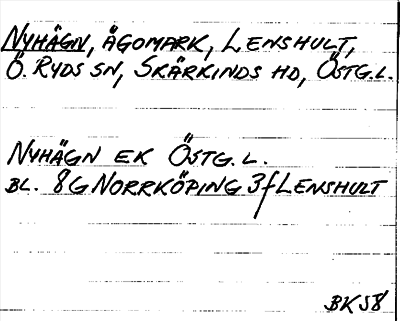 NYHÄGN, ÄGOMARK, LENSHULT,
Ö. RYDS SN, SKÄRKINDS HD, ÖSTG.L.
NYHÄGN EK ÖSTG.L.
BL. 8G NORRKÖPING 3f LENSHULT
BK58